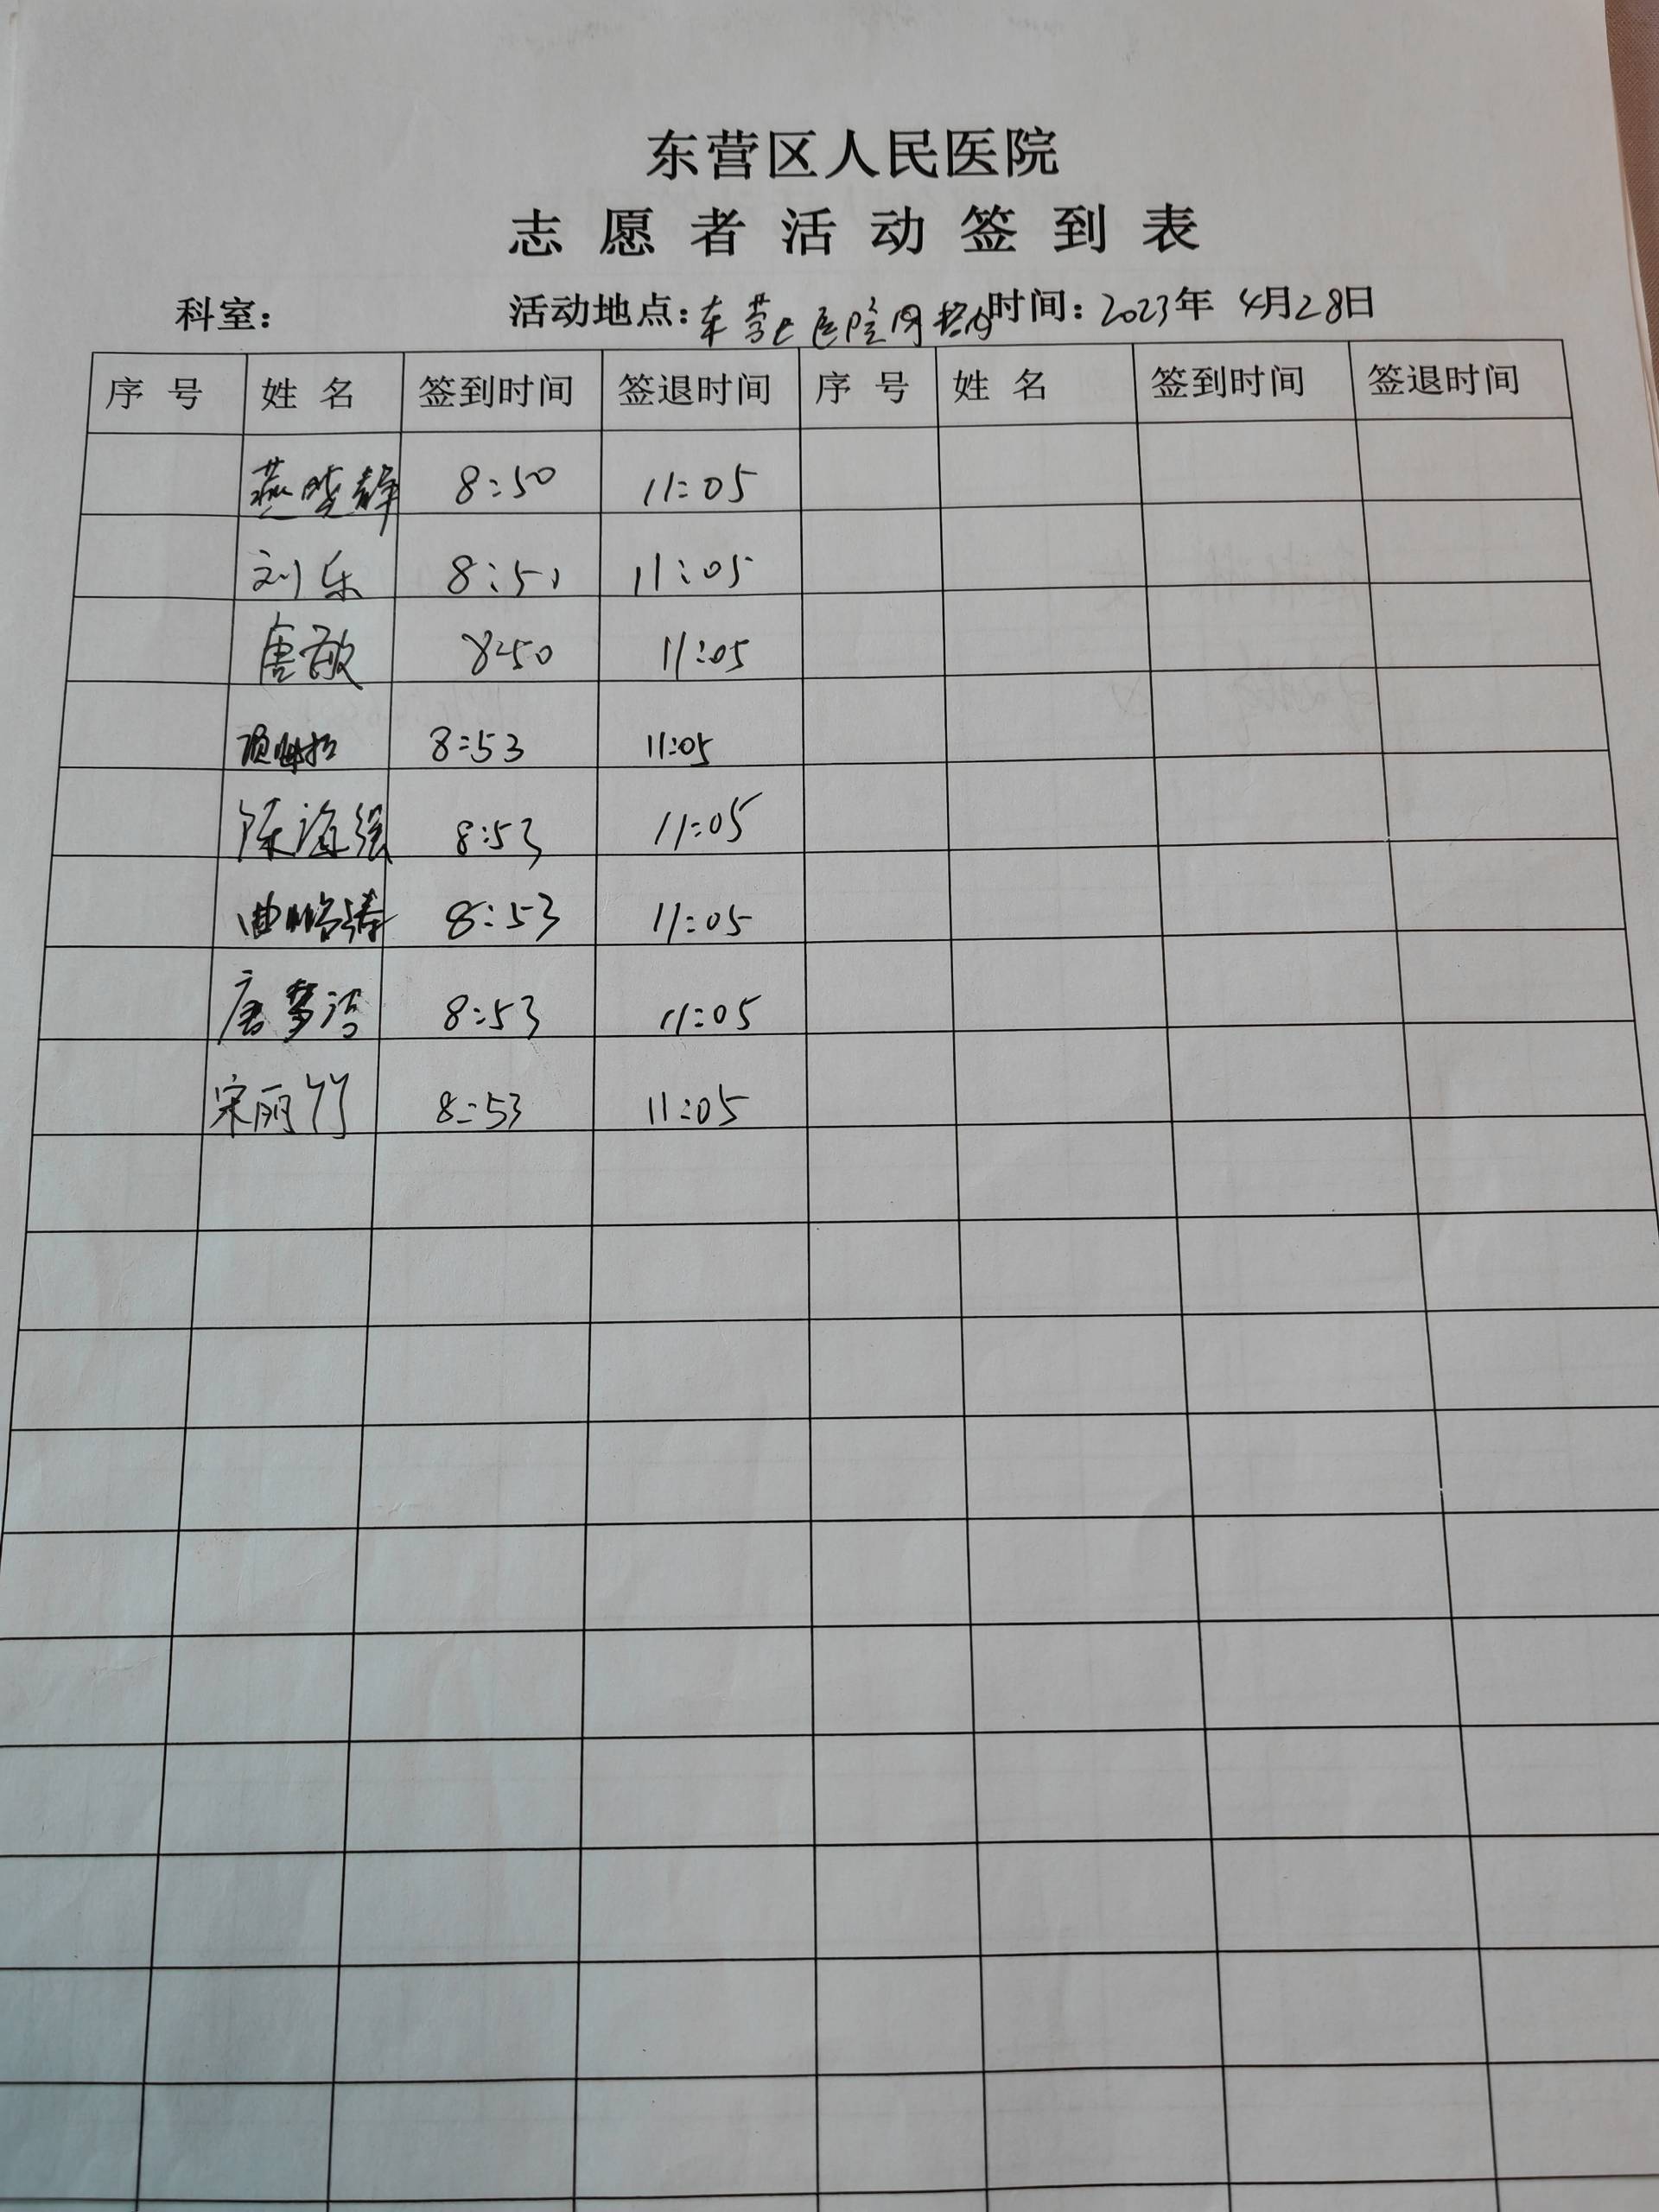 东营区人民医院
志愿者活动签到表
科室： 活动地点：东营区医院 时间：2023年 4月28日
序号 姓名 签到时间 签退时间 序号 姓名 签到时间 签退时间
燕晓静 8:50 11:05
刘乐 8:51 11:05
唐敏 8:50 11:05
8:53 11:05
陈海强 8:53 11:05
曲 8:53 11:05
唐梦洁 8:53 11:05
宋丽竹 8:53 11:05